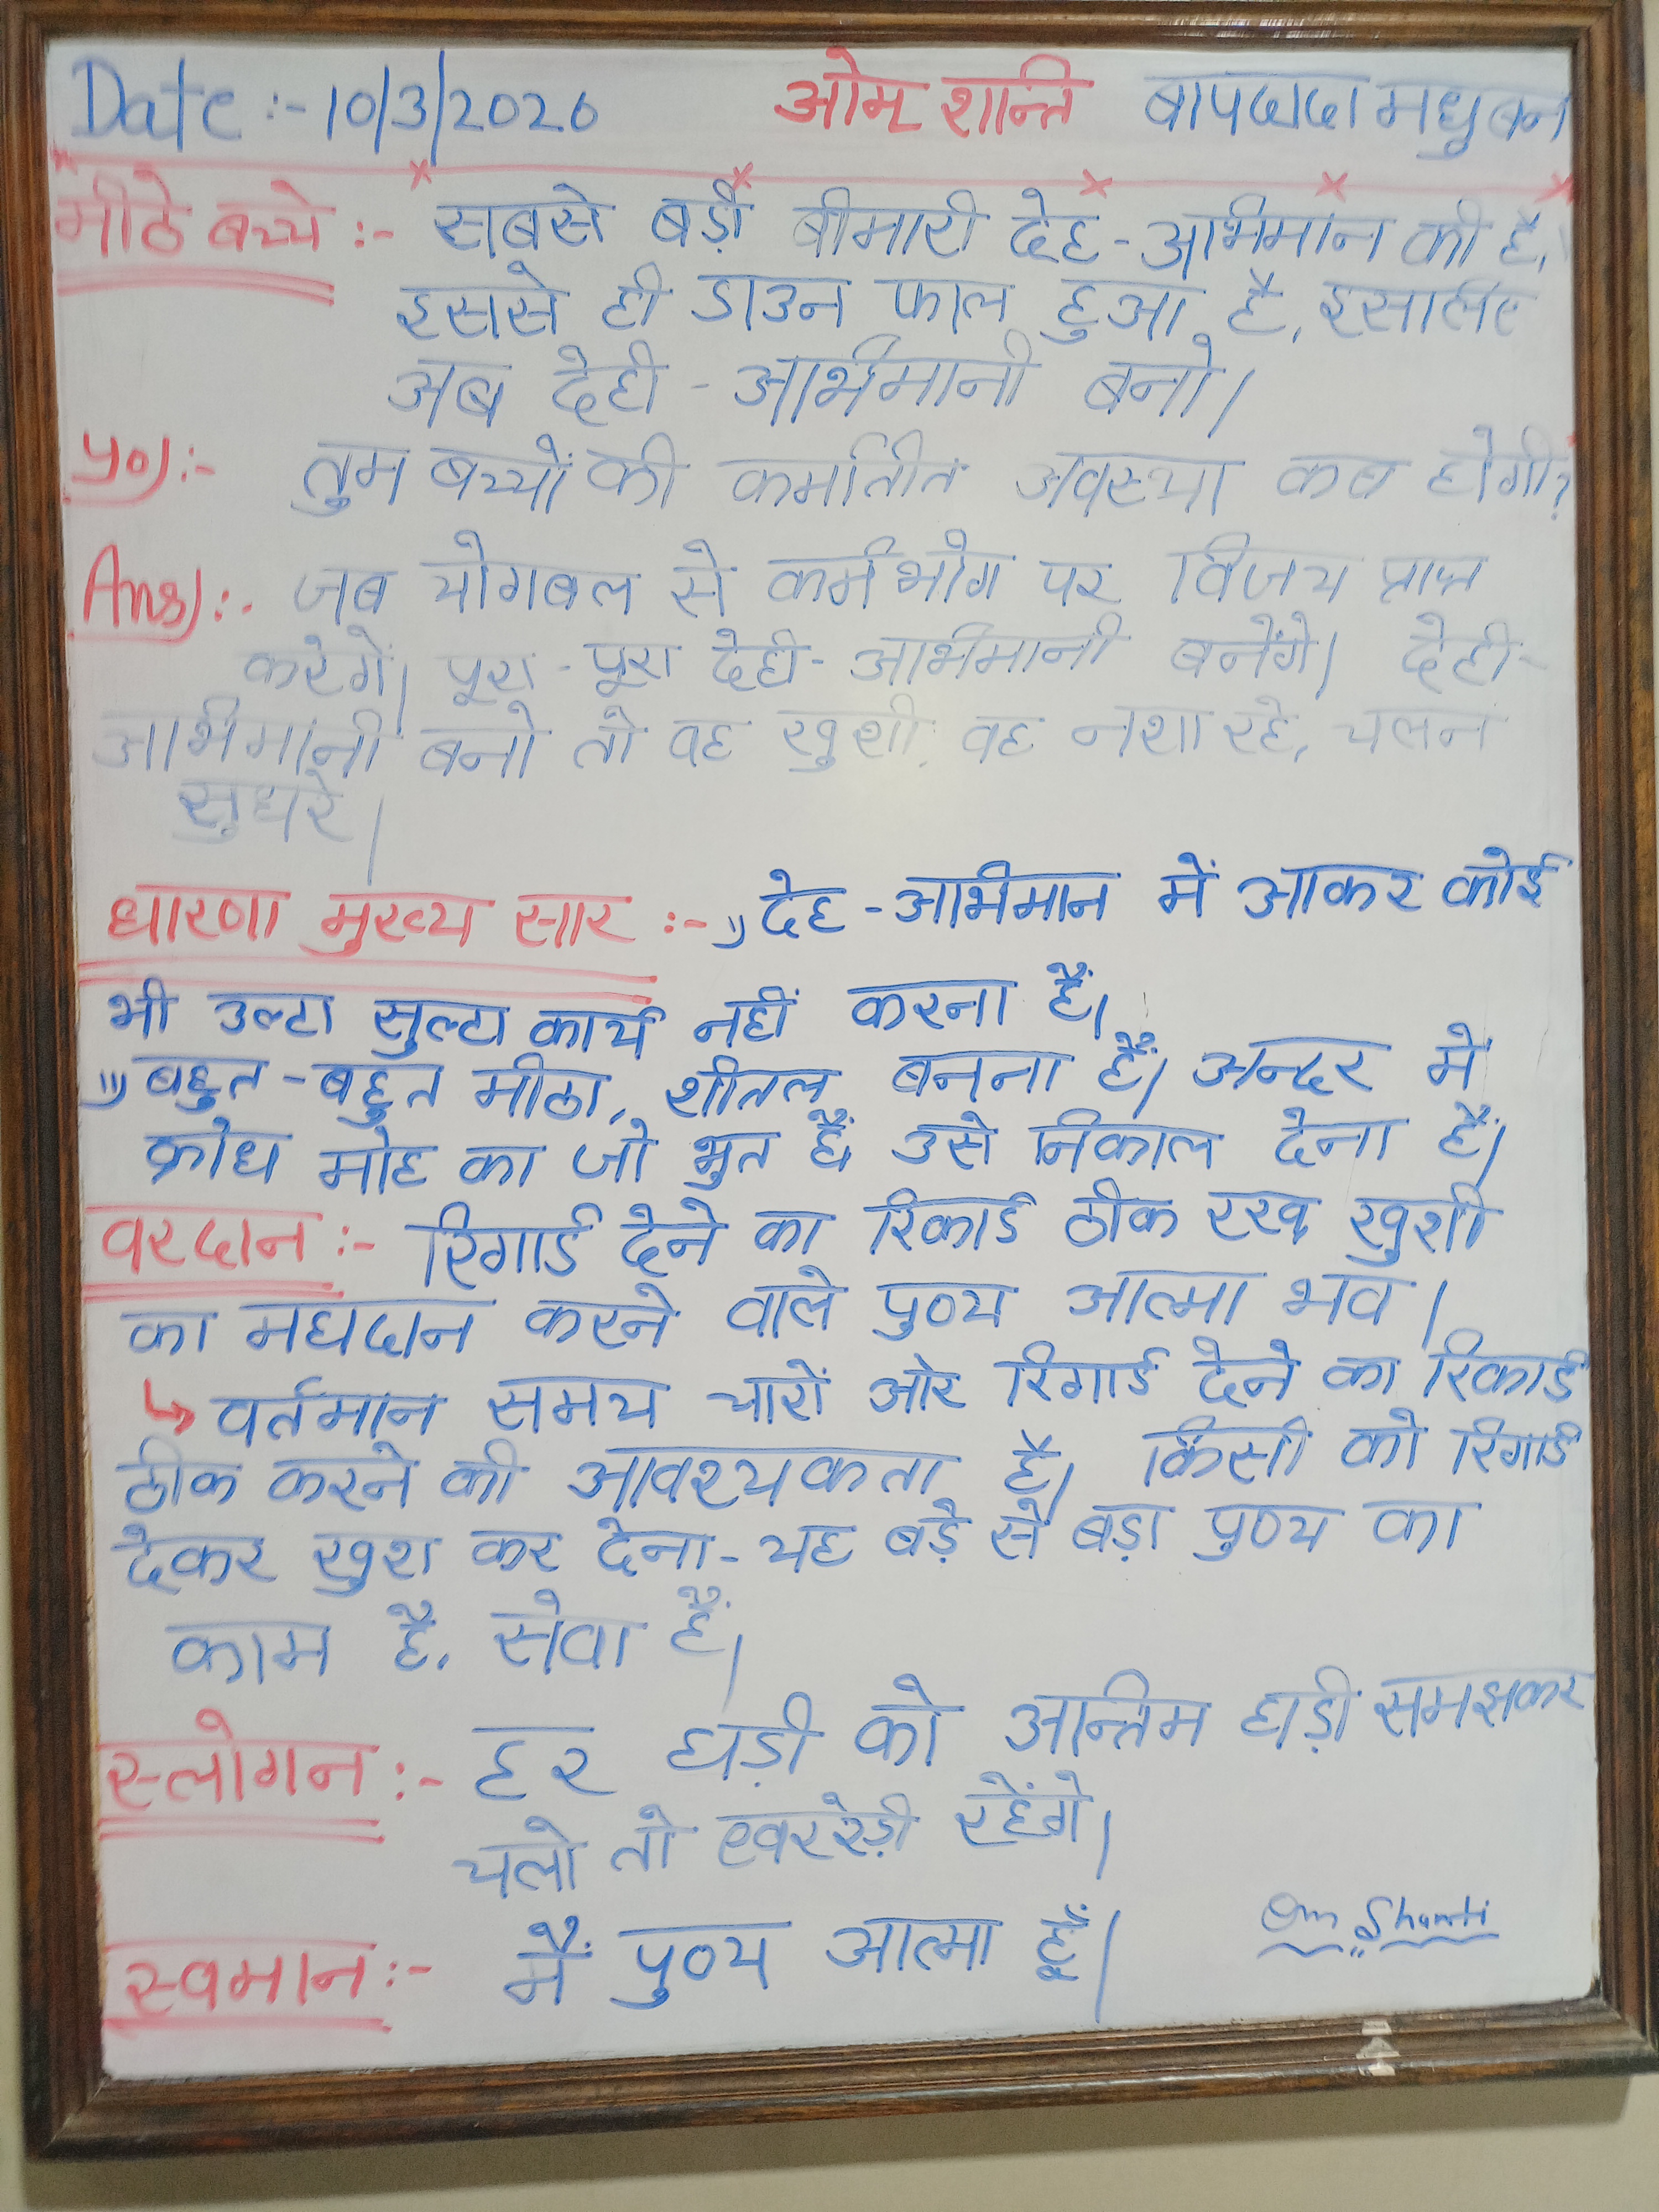 Date :- 10/3/2026 ओम् शान्ति बापदादा मधुबन
मीठे बच्चे :- सबसे बड़ी बीमारी देह-अभिमान की है,
इससे ही डाउन फाल हुआ है, इसलिए
अब देही-अभिमानी बनो।
प्र०) :- तुम बच्चों की कर्मातीत अवस्था कब होगी?
Ans) :- जब योगबल से कर्मभोग पर विजय प्राप्त
करेगें। पूरा-पूरा देही-अभिमानी बनेंगे। देही-
अभिमानी बनो तो वह खुशी, वह नशा रहे, चलन
सुधरे।
धारणा मुख्य सार :- 1) देह-अभिमान में आकर कोई
भी उल्टा सुल्टा कार्य नहीं करना हैं।
11) बहुत-बहुत मीठा, शीतल बनना हैं। अन्दर में
क्रोध मोह का जो भुत हैं उसे निकाल देना हैं।
वरदान :- रिगार्ड देने का रिकार्ड ठीक रख खुशी
का महादान करने वाले पुण्य आत्मा भव।
↳ वर्तमान समय चारों ओर रिगार्ड देने का रिकार्ड
ठीक करने की आवश्यकता है। किसी को रिगार्ड
देकर खुश कर देना - यह बड़े से बड़ा पुण्य का
काम है, सेवा हैं।
स्लोगन :- हर घड़ी को अन्तिम घड़ी समझकर
चलो तो एवररेड़ी रहेंगे।
स्वमान :- मैं पुण्य आत्मा हूँ।
Om Shanti